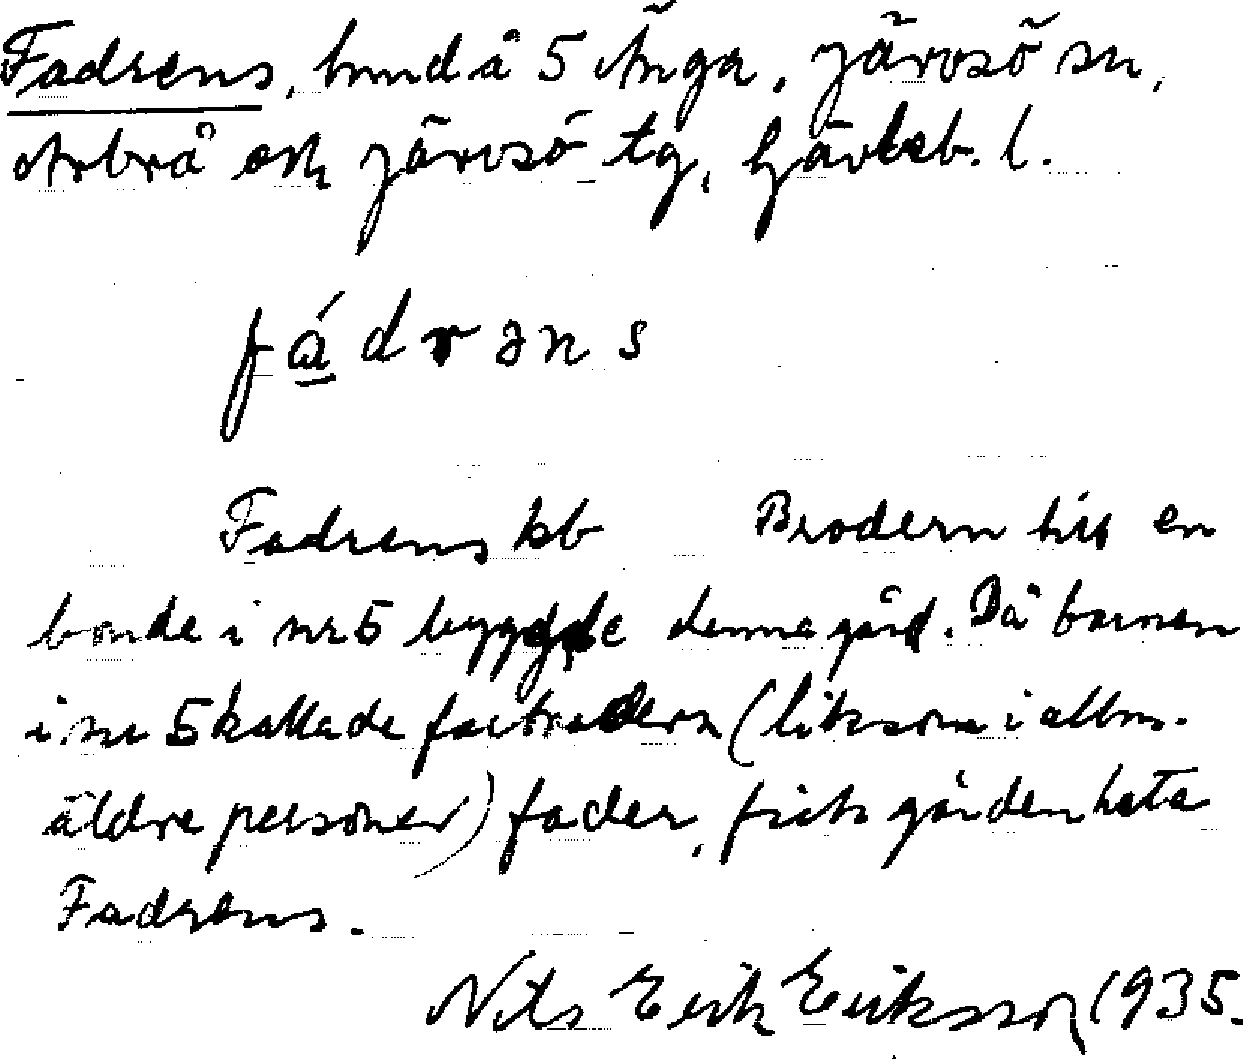 Fadrens, hmnd å 5 Änga, Järvsö sn,
Arbrå och Järvsö tg, Gävleb. l.
fádrəns
Fadrens kb Brodern till en
bonde i nr 5 byggde denna gård. Då barnen
i nr 5 kallade farbrodern (liksom i allm.
äldre personer) fader, fick gården heta
Fadrens.
Nils Erik Eriksson 1935.